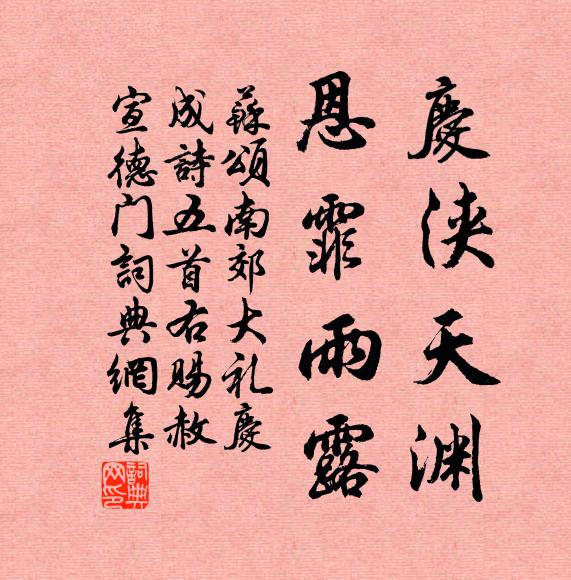 慶浹天渊
恩霏雨露
蘇頌南郊大礼慶
成詩五首右賜赦
宣德门詞典網集
詞典
网印